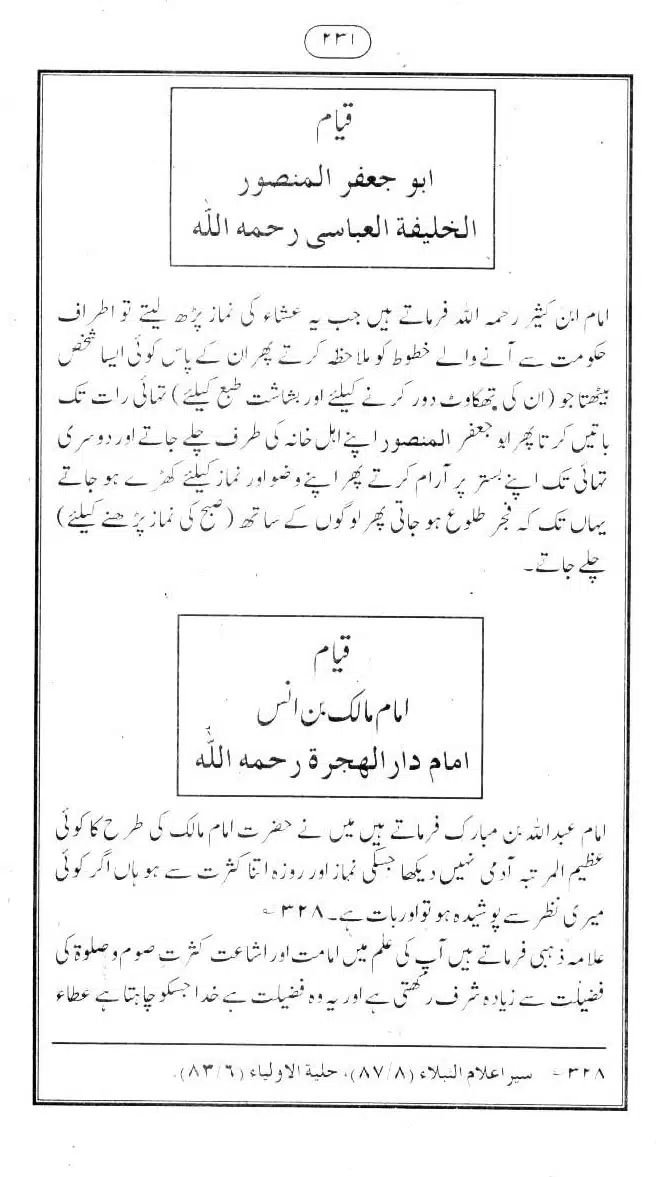 ۲۳۱
قیام
ابو جعفر المنصور
الخلیفة العباسی رحمه اللّٰه
امام ابن کثیر رحمہ اللہ فرماتے ہیں جب یہ عشاء کی نماز پڑھ لیتے تو اطراف
حکومت سے آنے والے خطوط کو ملاحظہ کرتے پھر ان کے پاس کوئی ایسا شخص
بیٹھتا جو (ان کی تھکاوٹ دور کرنے کیلئے اور بشاشت طبع کیلئے) تہائی رات تک
باتیں کرتا پھر ابو جعفر المنصور اپنے اہل خانہ کی طرف چلے جاتے اور دوسری
تہائی تک اپنے بستر پر آرام کرتے پھر اپنے وضو اور نماز کیلئے کھڑے ہو جاتے
یہاں تک کہ فجر طلوع ہو جاتی پھر لوگوں کے ساتھ (صبح کی نماز پڑھنے کیلئے)
چلے جاتے۔
قیام
امام مالک بن انس
امام دار الهجرة رحمه اللّٰه
امام عبداللہ بن مبارک فرماتے ہیں میں نے حضرت امام مالک کی طرح کا کوئی
عظیم المرتبہ آدمی نہیں دیکھا جسکی نماز اور روزہ اتنا کثرت سے ہو ہاں اگر کوئی
میری نظر سے پوشیدہ ہو تو اور بات ہے۔ ۳۲۸؎
علامہ ذہبی فرماتے ہیں آپ کی علم میں امامت اور اشاعت کثرت صوم وصلوۃ کی
فضیلت سے زیادہ شرف رکھتی ہے اور یہ وہ فضیلت ہے خدا جسکو چاہتا ہے عطاء
۳۲۸؎ سیر اعلام النبلاء (۸/۸۷)، حلیة الاولیاء (۶/۸۳).